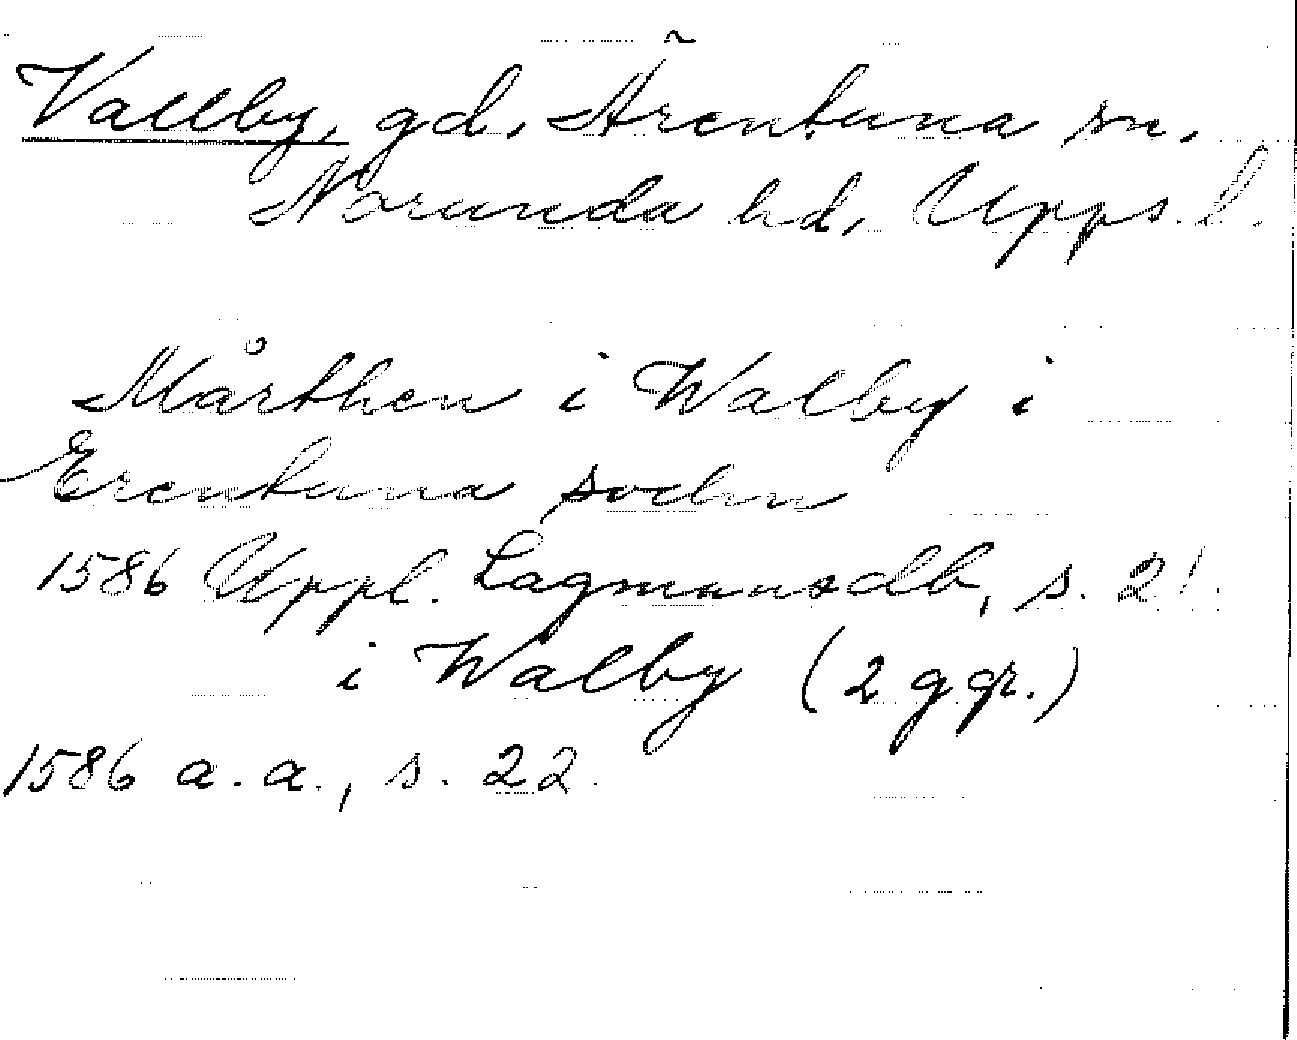 Vallby, gd, Ärentuna sn.
Norunda hd, Upps. l.
Mårthen i Walby i
Erentuna sochn
1586 Uppl. Lagmansdb, s. 21.
i Walby (2 ggr.)
1586 a. a., s. 22.